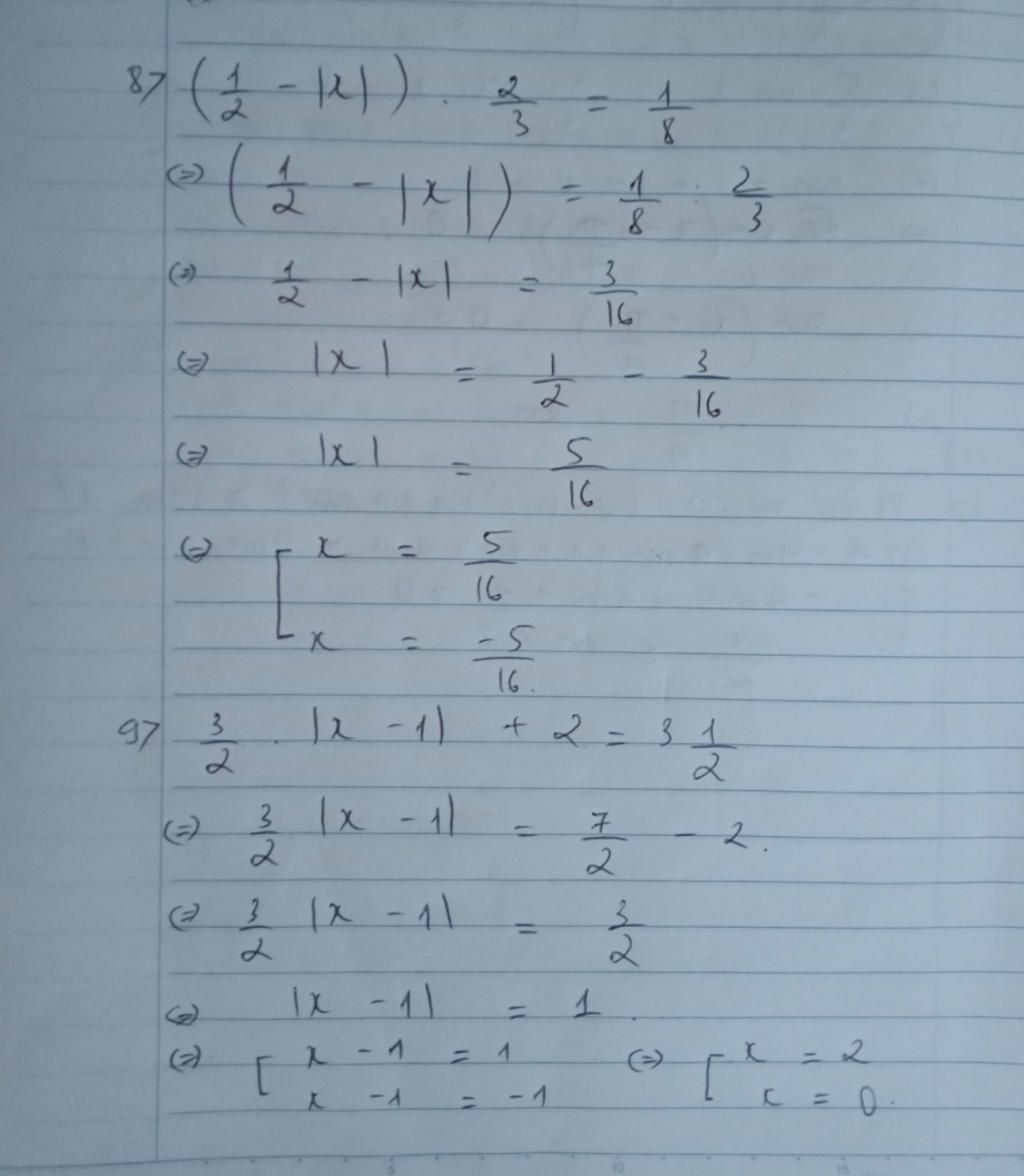 8> (1/2 - |x|) . 2/3 = 1/8
(=) (1/2 - |x|) = 1/8 . 2/3
(=) 1/2 - |x| = 3/16
(=) |x| = 1/2 - 3/16
(=) |x| = 5/16
(=) [ x = 5/16
x = -5/16.
9> 3/2 . |x - 1| + 2 = 3 1/2
(=) 3/2 |x - 1| = 7/2 - 2.
(=) 3/2 |x - 1| = 3/2
(=) |x - 1| = 1.
(=) [ x - 1 = 1 (=) [ x = 2
x - 1 = -1 x = 0.
5 10 15